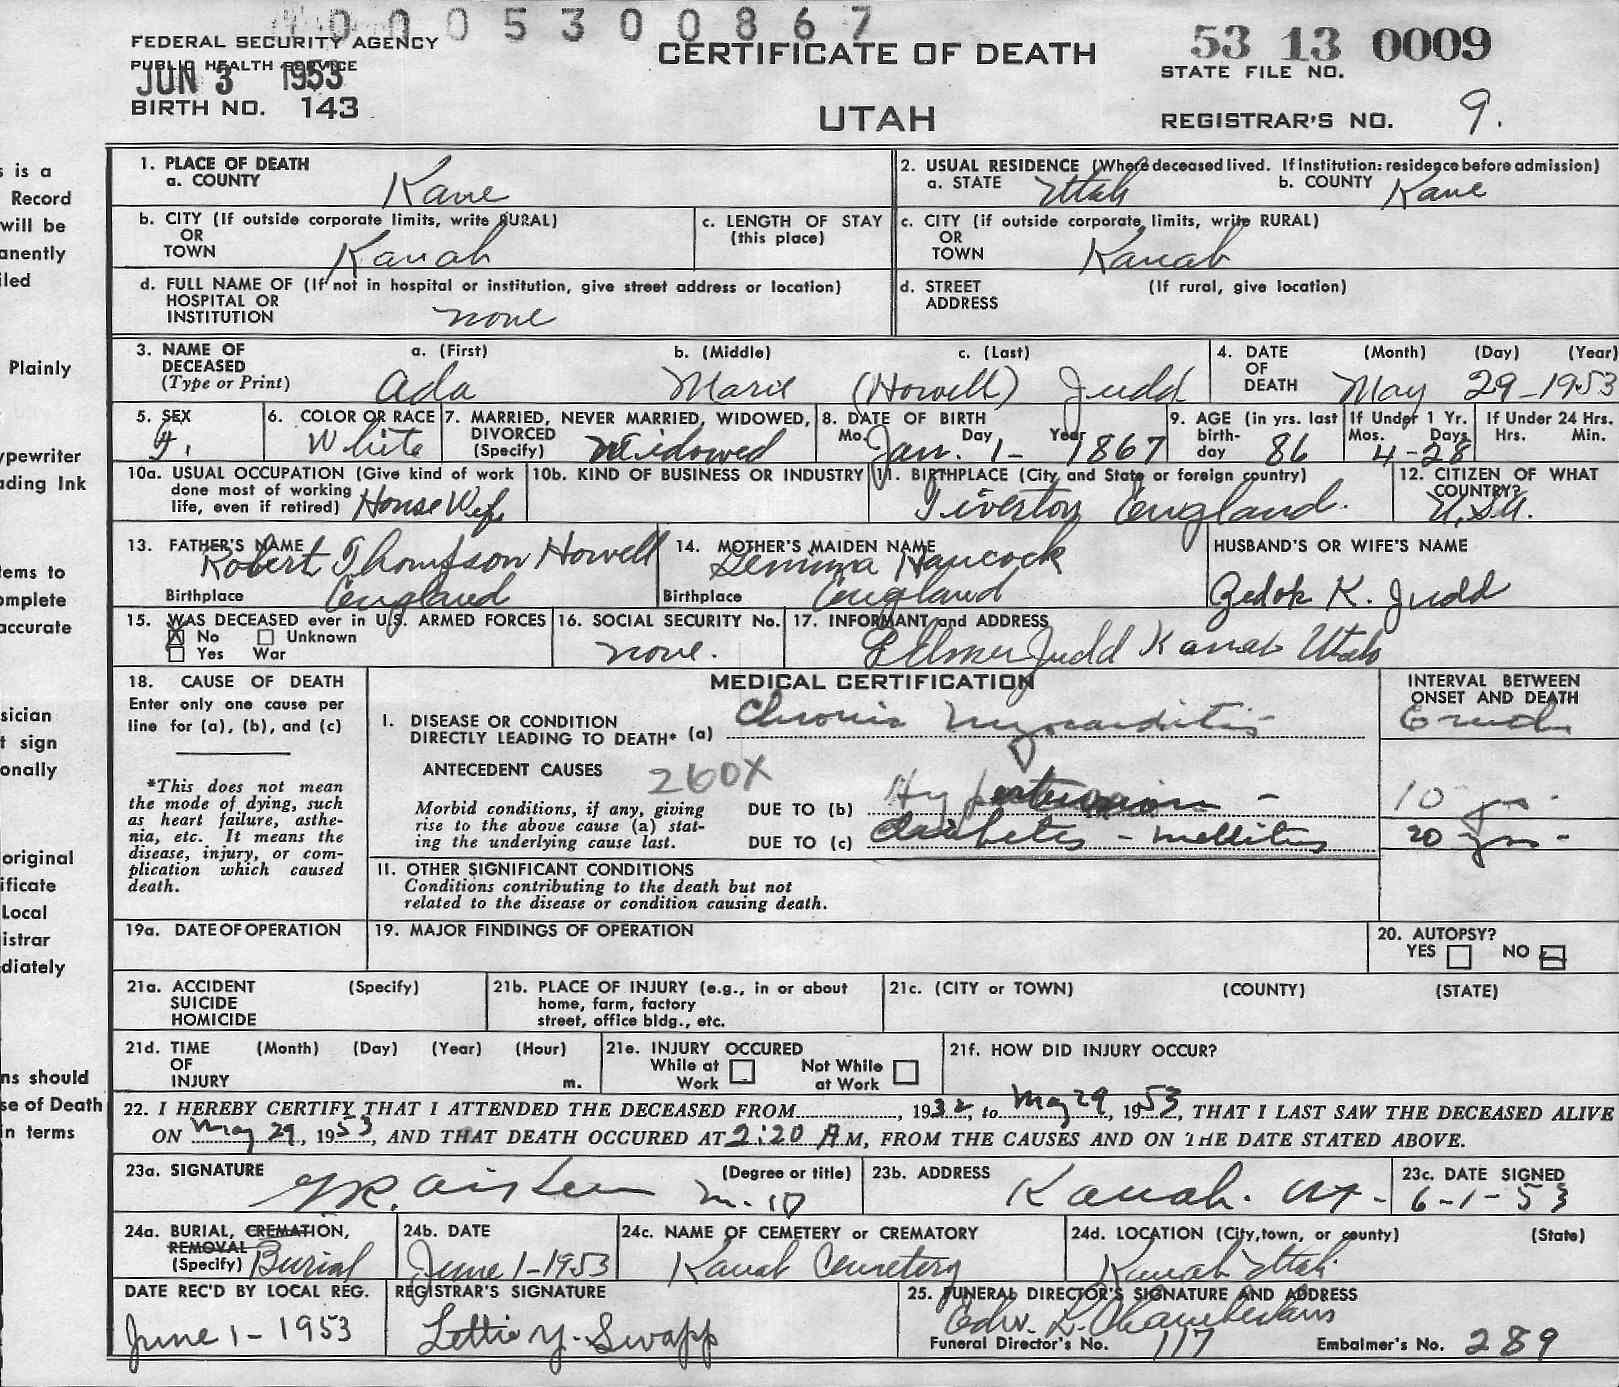 0005300867
FEDERAL SECURITY AGENCY
PUBLIC HEALTH SERVICE
JUN 3 1953
BIRTH NO. 143
CERTIFICATE OF DEATH
UTAH
53 13 0009
STATE FILE NO.
REGISTRAR'S NO. 9.
1. PLACE OF DEATH
a. COUNTY Kane
2. USUAL RESIDENCE (Where deceased lived. If institution: residence before admission)
a. STATE Utah b. COUNTY Kane
b. CITY (If outside corporate limits, write RURAL)
OR
TOWN Kanab
c. LENGTH OF STAY
(this place)
c. CITY (if outside corporate limits, write RURAL)
OR
TOWN Kanab
d. FULL NAME OF (If not in hospital or institution, give street address or location)
HOSPITAL OR
INSTITUTION none
d. STREET (If rural, give location)
ADDRESS
3. NAME OF DECEASED (Type or Print)
a. (First) b. (Middle) c. (Last)
Ada Marie (Howell) Judd
4. DATE OF DEATH (Month) (Day) (Year)
May 29-1953
5. SEX
F.
6. COLOR OR RACE
White
7. MARRIED, NEVER MARRIED, WIDOWED,
DIVORCED
(Specify) Widowed
8. DATE OF BIRTH
Mo. Day Year
Jan. 1- 1867
9. AGE (in yrs. last
birth-
day 86
If Under 1 Yr.
Mos. Days
4-28
If Under 24 Hrs.
Hrs. Min.
10a. USUAL OCCUPATION (Give kind of work
done most of working
life, even if retired) House Wife
10b. KIND OF BUSINESS OR INDUSTRY
11. BIRTHPLACE (City and State or foreign country)
Tiverton England.
12. CITIZEN OF WHAT
COUNTRY?
U.S.A.
13. FATHER'S NAME
Robert Thompson Howell
Birthplace England
14. MOTHER'S MAIDEN NAME
Jemima Hancock
Birthplace England
HUSBAND'S OR WIFE'S NAME
Zadok K. Judd
15. WAS DECEASED ever in U.S. ARMED FORCES
No Unknown
Yes War
16. SOCIAL SECURITY No.
none.
17. INFORMANT and ADDRESS
Elmer Judd Kanab Utah
18. CAUSE OF DEATH
Enter only one cause per
line for (a), (b), and (c)
*This does not mean
the mode of dying, such
as heart failure, asthe-
nia, etc. It means the
disease, injury, or com-
plication which caused
death.
MEDICAL CERTIFICATION
INTERVAL BETWEEN
ONSET AND DEATH
I. DISEASE OR CONDITION
DIRECTLY LEADING TO DEATH* (a) Chronic Myocarditis
ANTECEDENT CAUSES 260X
Morbid conditions, if any, giving
rise to the above cause (a) stat-
ing the underlying cause last.
DUE TO (b) Hypertension - 10 yrs.
DUE TO (c) diabetes - mellitus 20 yrs -
II. OTHER SIGNIFICANT CONDITIONS
Conditions contributing to the death but not
related to the disease or condition causing death.
19a. DATE OF OPERATION
19. MAJOR FINDINGS OF OPERATION
20. AUTOPSY?
YES NO
21a. ACCIDENT (Specify)
SUICIDE
HOMICIDE
21b. PLACE OF INJURY (e.g., in or about
home, farm, factory
street, office bldg., etc.
21c. (CITY or TOWN) (COUNTY) (STATE)
21d. TIME (Month) (Day) (Year) (Hour)
OF
INJURY m.
21e. INJURY OCCURED
While at Work Not While at Work
21f. HOW DID INJURY OCCUR?
22. I HEREBY CERTIFY THAT I ATTENDED THE DECEASED FROM , 1932, to May 29, 1953, THAT I LAST SAW THE DECEASED ALIVE
ON May 29, 1953, AND THAT DEATH OCCURED AT 2:20 A M, FROM THE CAUSES AND ON THE DATE STATED ABOVE.
23a. SIGNATURE (Degree or title)
Aiken M.D
23b. ADDRESS
Kanab. Ut-
23c. DATE SIGNED
6-1-53
24a. BURIAL, CREMATION,
REMOVAL
(Specify) Burial
24b. DATE
June 1-1953
24c. NAME OF CEMETERY or CREMATORY
Kanab Cemetery
24d. LOCATION (City, town, or county) (State)
Kanab Utah
DATE REC'D BY LOCAL REG.
June 1-1953
REGISTRAR'S SIGNATURE
Lettie Y. Swapp
25. FUNERAL DIRECTOR'S SIGNATURE AND ADDRESS
Edw. L. Chamberlain
Funeral Director's No. 117 Embalmer's No. 289
s is a
Record
will be
anently
iled
Plainly
ypewriter
ading Ink
tems to
omplete
accurate
sician
t sign
onally
original
ificate
Local
istrar
diately
ns should
se of Death
n terms